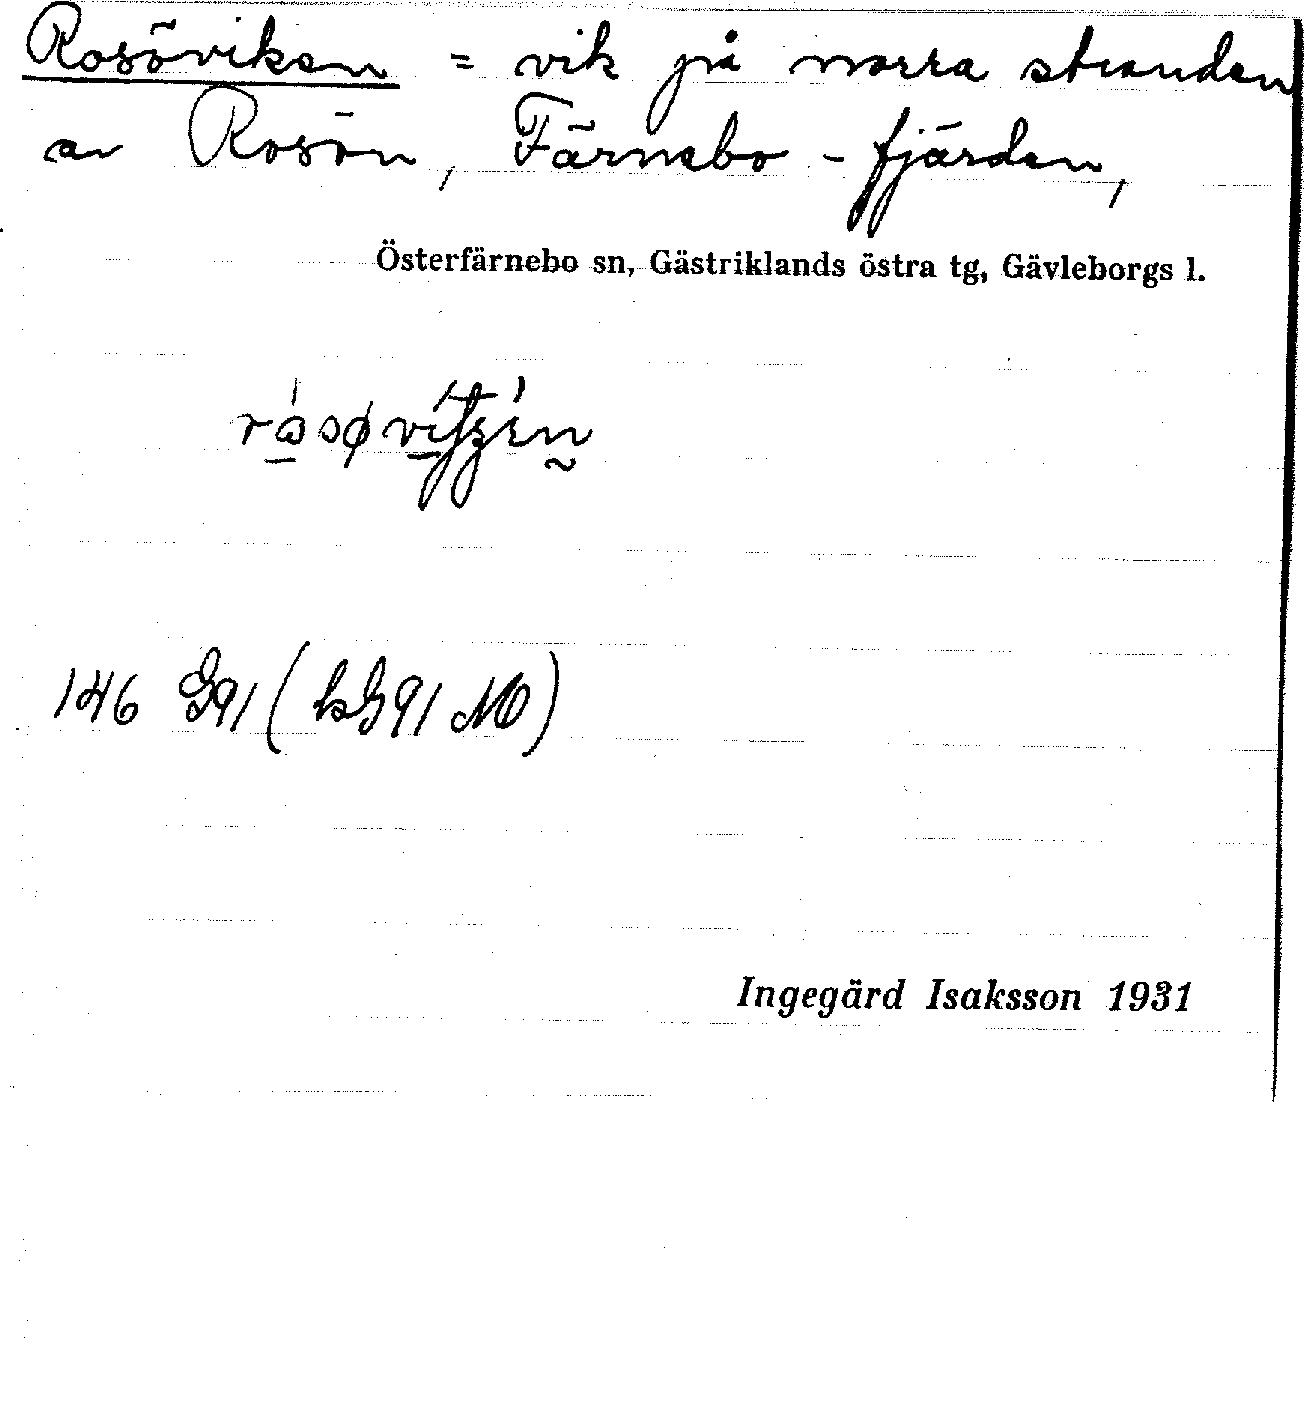 Rosöviken = vik på norra stranden
av Rosön, Färnebo-fjärden,
Österfärnebo sn, Gästriklands östra tg, Gävleborgs l.
146 G91 (
Ingegärd Isaksson 1931